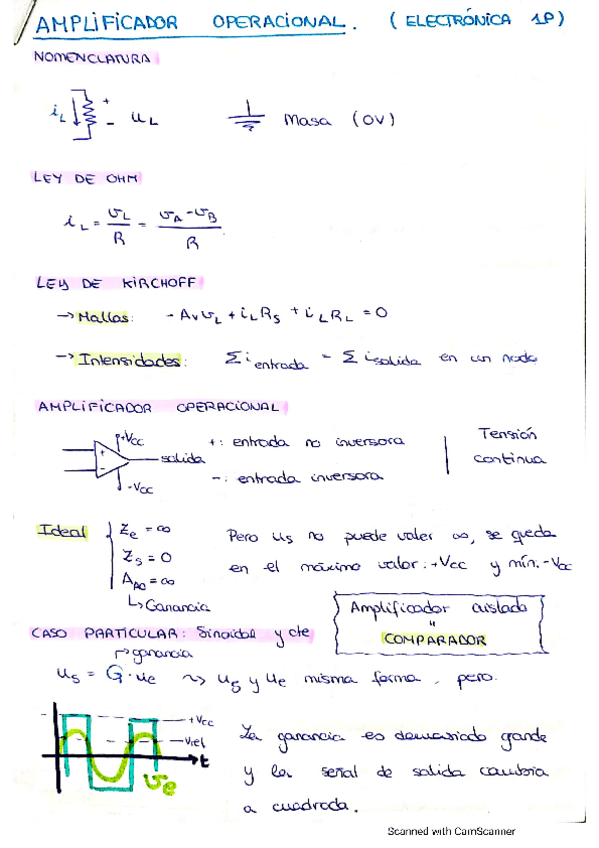 AMPLIFICADOR OPERACIONAL. (ELECTRÓNICA 1P)
NOMENCLATURA
iL + - uL Masa (0V)
LEY DE OHM
iL = vL/R = (vA - vB)/R
LEY DE KIRCHOFF
→ Mallas: - Av vL + iL RS + iL RL = 0
→ Intensidades: Σ i entrada = Σ i salida en un nodo
AMPLIFICADOR OPERACIONAL
+Vcc + - salida -Vcc
+: entrada no inversora
-: entrada inversora
Tensión
continua
Ideal { Ze = ∞
Zs = 0
AAO = ∞
↳ Ganancia
Pero us no puede valer ∞, se queda
en el máximo valor: +Vcc y mín. -Vcc
Amplificador aislado
"
COMPARADOR
CASO PARTICULAR: Sinoidal y cte
ganancia
us = G · ue ⇝ us y ue misma forma, pero.
+Vcc
t
ve
La ganancia es demasiado grande
y la señal de salida cambia
a cuadrada.
Scanned with CamScanner